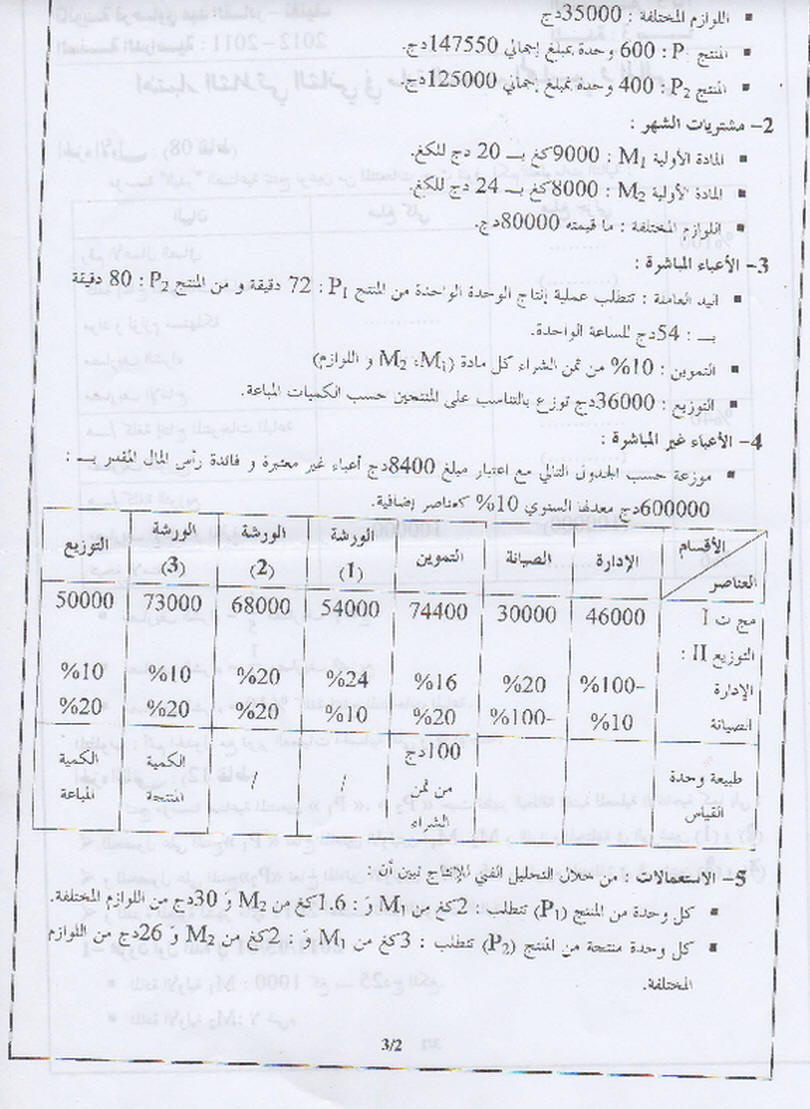 اللوازم المختلفة : 35000دج
المنتج P₁ : 600 وحدة بمبلغ إجمالي 147550دج.
المنتج P₂ : 400 وحدة بمبلغ إجمالي 125000دج.
2- مشتريات الشهر :
المادة الأولية M₁ : 9000كغ بــ 20 دج للكغ.
المادة الأولية M₂ : 8000كغ بــ 24 دج للكغ.
اللوازم المختلفة : ما قيمته 80000دج.
3- الأعباء المباشرة :
اليد العاملة : تتطلب عملية إنتاج الوحدة الواحدة من المنتج P₁ : 72 دقيقة و من المنتج P₂ : 80 دقيقة
بــ : 54دج للساعة الواحدة.
التموين : 10% من ثمن الشراء كل مادة (M₁، M₂ و اللوازم)
التوزيع : 36000دج توزع بالتناسب على المنتجين حسب الكميات المباعة.
4- الأعباء غير المباشرة :
موزعة حسب الجدول التالي مع اعتبار مبلغ 8400دج أعباء غير معتبرة و فائدة رأس المال المقدر بــ :
600000دج معدلها السنوي 10% كعناصر إضافية.
الأقسام العناصر الإدارة الصيانة التموين الورشة (1) الورشة (2) الورشة (3) التوزيع
مج ت I 46000 30000 74400 54000 68000 73000 50000
التوزيع II :
الإدارة -100% 20% 16% 24% 20% 10% 10%
الصيانة 10% -100% 20% 10% 20% 20% 20%
طبيعة وحدة القياس 100دج من ثمن الشراء / / الكمية المنتجة الكمية المباعة
5- الاستعمالات : من خلال التحليل الفني للإنتاج تبين أن :
كل وحدة من المنتج (P₁) تتطلب : 2كغ من M₁ و : 1.6كغ من M₂ و 30دج من اللوازم المختلفة.
كل وحدة منتجة من المنتج (P₂) تتطلب : 3كغ من M₁ و : 2كغ من M₂ و 26دج من اللوازم
المختلفة.
3/2